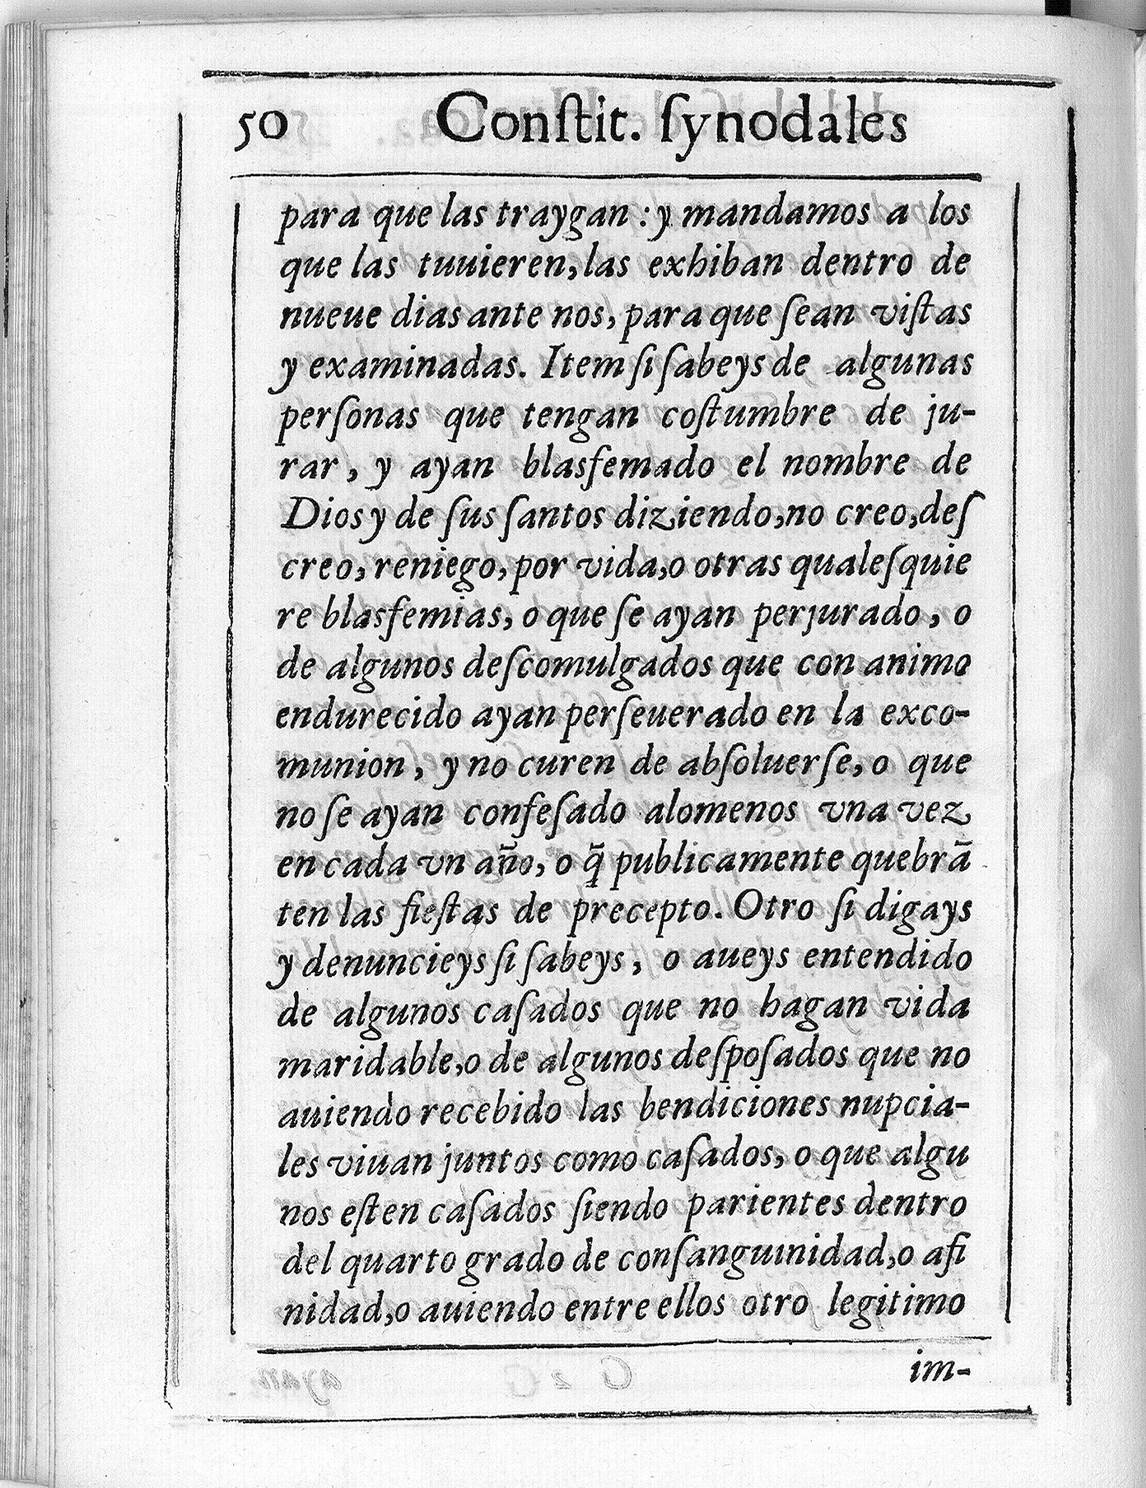 50 Conſtit. ſynodales
para que las traygan : y mandamos a los
que las tuuieren, las exhiban dentro de
nueue dias ante nos, para que ſean viſtas
y examinadas. Item ſi ſabeys de algunas
perſonas que tengan coſtumbre de ju-
rar, y ayan blasfemado el nombre de
Dios y de ſus ſantos diziendo, no creo, deſ
creo, reniego, por vida, o otras qualeſquie
re blasfemias, o que ſe ayan perjurado, o
de algunos deſcomulgados que con animo
endurecido ayan perſeuerado en la exco-
munion, y no curen de abſoluerſe, o que
no ſe ayan confeſado alomenos vna vez
en cada vn año, o q̃ publicamente quebrã
ten las fieſtas de precepto. Otro ſi digays
y denuncieys ſi ſabeys, o aueys entendido
de algunos caſados que no hagan vida
maridable, o de algunos deſpoſados que no
auiendo recebido las bendiciones nupcia-
les viuan juntos como caſados, o que algu
nos eſten caſados ſiendo parientes dentro
del quarto grado de conſanguinidad, o afi
nidad, o auiendo entre ellos otro legitimo
im-